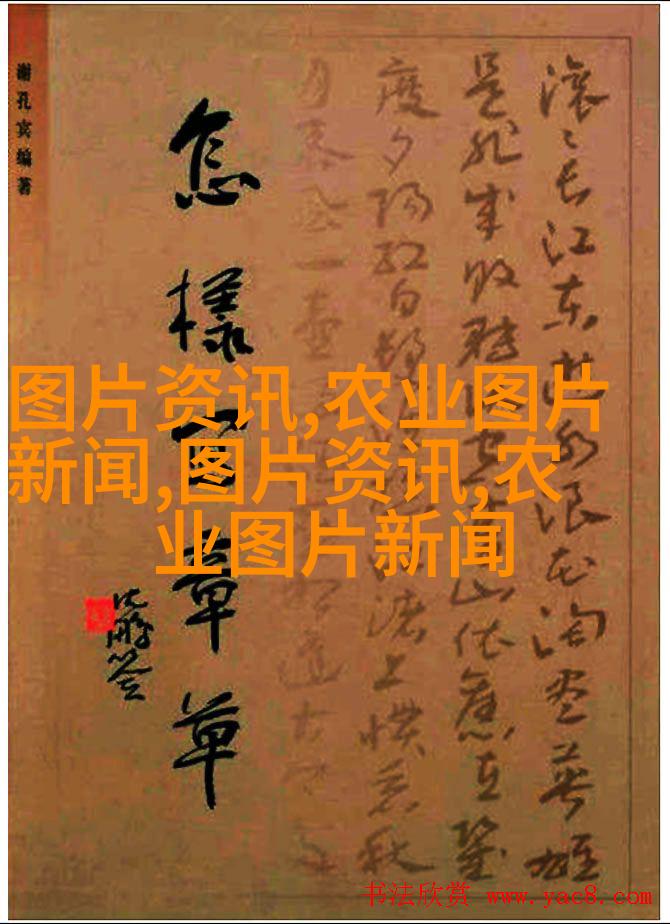 滚滚长江东逝水浪花淘尽英雄
是非成败转头空青山依旧在几
度夕阳红白发渔樵江渚上惯看秋
月春风一壶
怎樣写章草
沈鹏签
谢孔宾编著
图片资讯,农业图片
新闻,图片资讯,农
业图片新闻
书法欣赏 www.yac8.com